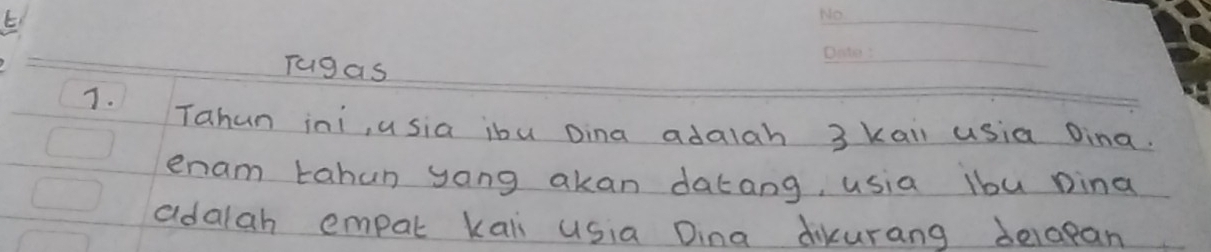 No
Date :
Tugas
1. Tahun ini, usia ibu Dina adalah 3 kali usia Dina.
enam tahun yang akan datang, usia ibu Dina
adalah empat kali usia Dina dikurang delapan